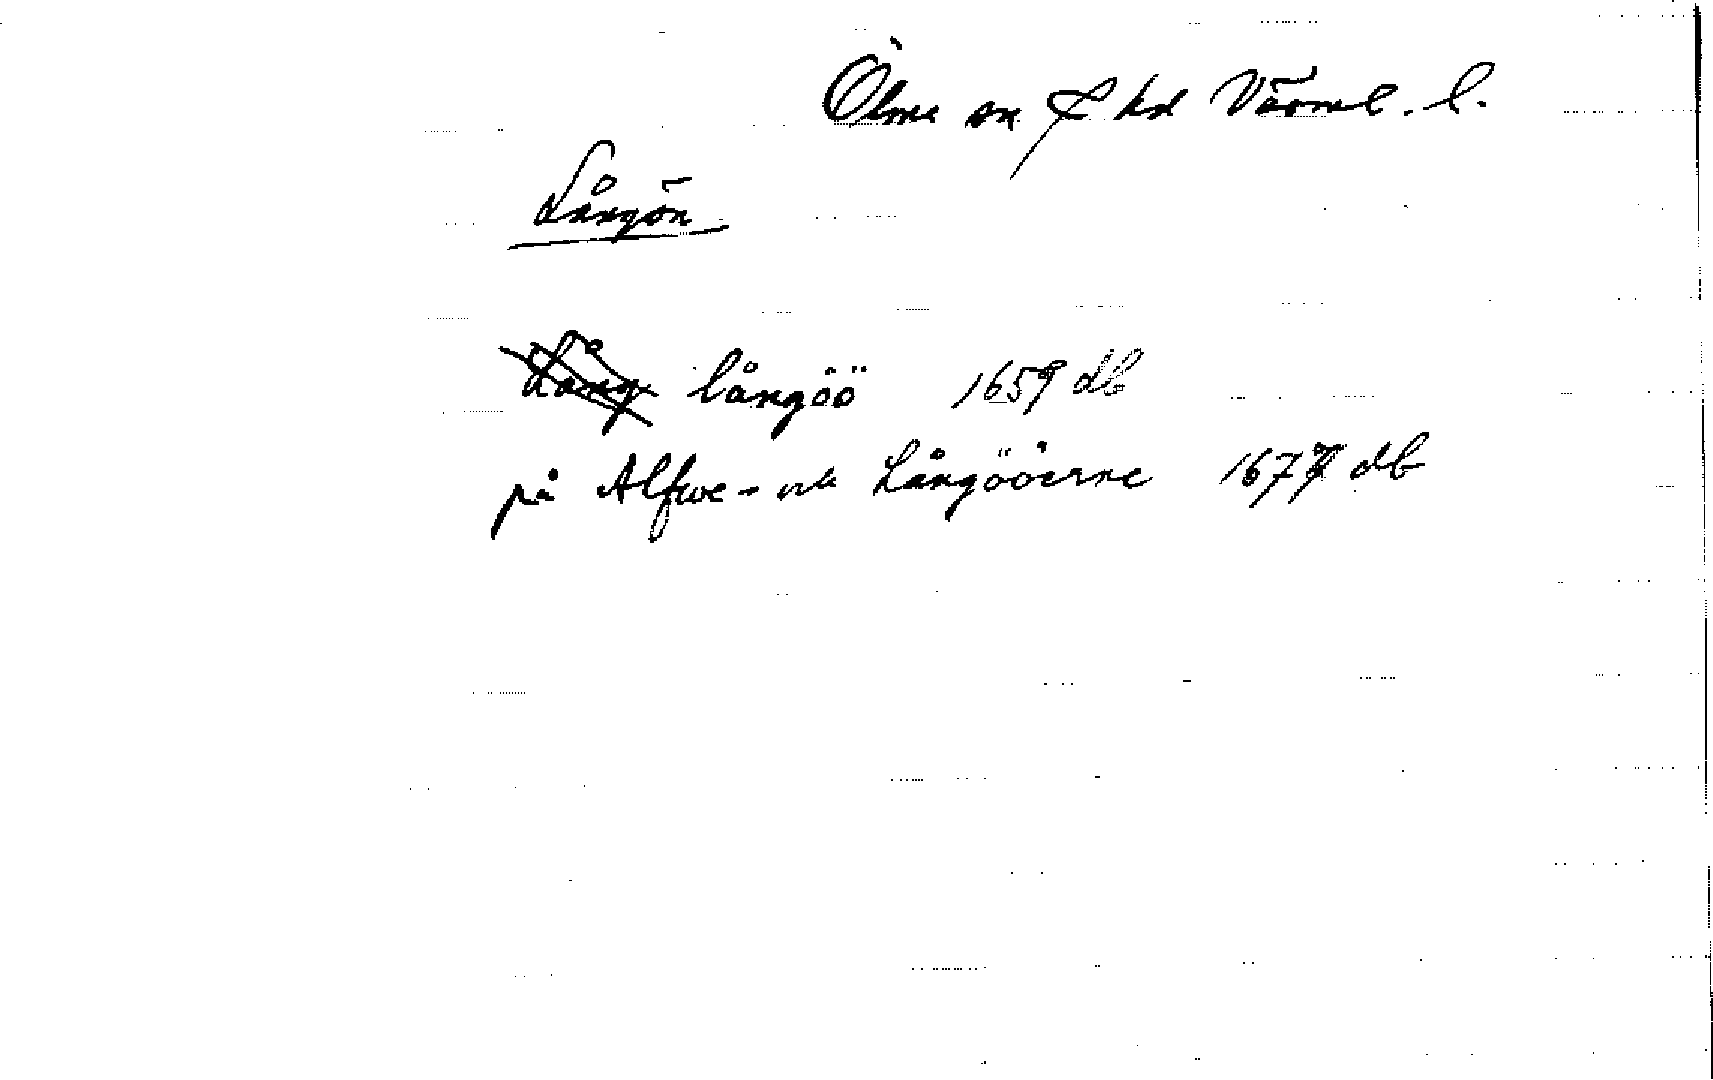 Ölme sn & hd Värml. l.
Långön
Lång långöö 1659 db
på Alfwe- och Långööerne 1677 db